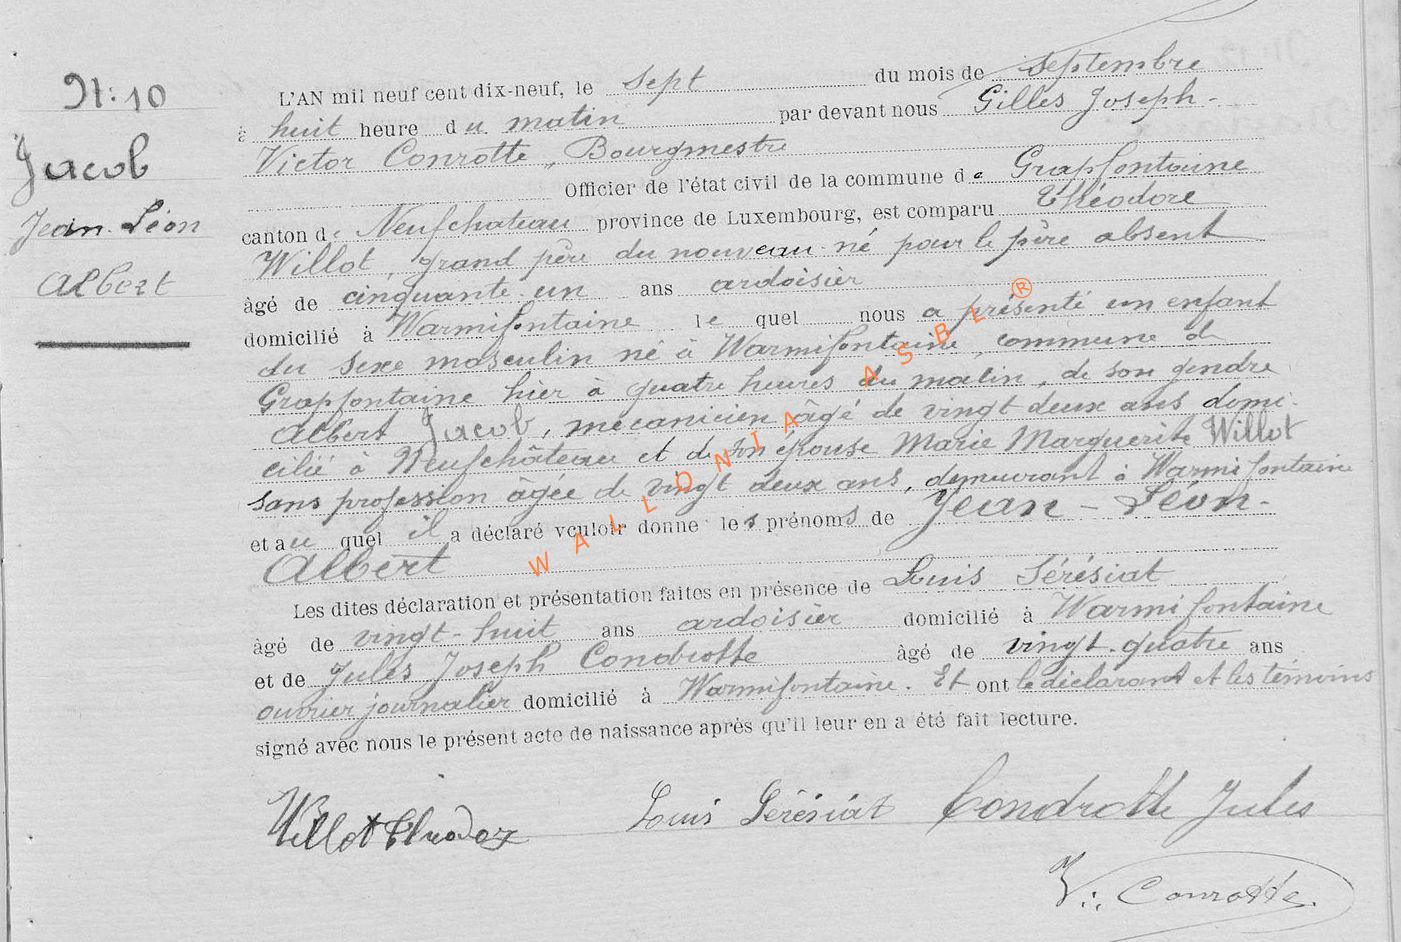 N: 10
Jacob
Jean-Léon
Albert
L'AN mil neuf cent dix-neuf, le sept du mois de septembre
à huit heure du matin par devant nous Gilles Joseph-
Victor Conrotte, Bourgmestre
Officier de l'état civil de la commune de Grapfontaine
canton de Neufchateau province de Luxembourg, est comparu Théodore
Willot, grand père du nouveau-né pour le père absent
âgé de cinquante un ans ardoisier
domicilié à Warmifontaine lequel nous a présenté un enfant
du sexe masculin né à Warmifontaine, commune de
Grapfontaine hier à quatre heures du matin, de son gendre
Albert Jacob, mécanicien âgé de vingt deux ans domi-
cilié à Neufchâteau et de son épouse Marie Marguerite Willot
sans profession âgée de vingt deux ans, demeurant à Warmifontaine
et au quel il a déclaré vouloir donne les prénoms de Jean-Léon-
Albert
Les dites déclaration et présentation faites en présence de Louis Sérésiat
âgé de vingt-huit ans ardoisier domicilié à Warmifontaine
et de Jules Joseph Condrotte âgé de vingt-quatre ans
ouvrier journalier domicilié à Warmifontaine. Et ont le déclarant et les témoins
signé avec nous le présent acte de naissance après qu'il leur en a été fait lecture.
Willot Théodor Louis Sérésiat Condrotte Jules
V: Conrotte.
WALLONIA ASBL ®